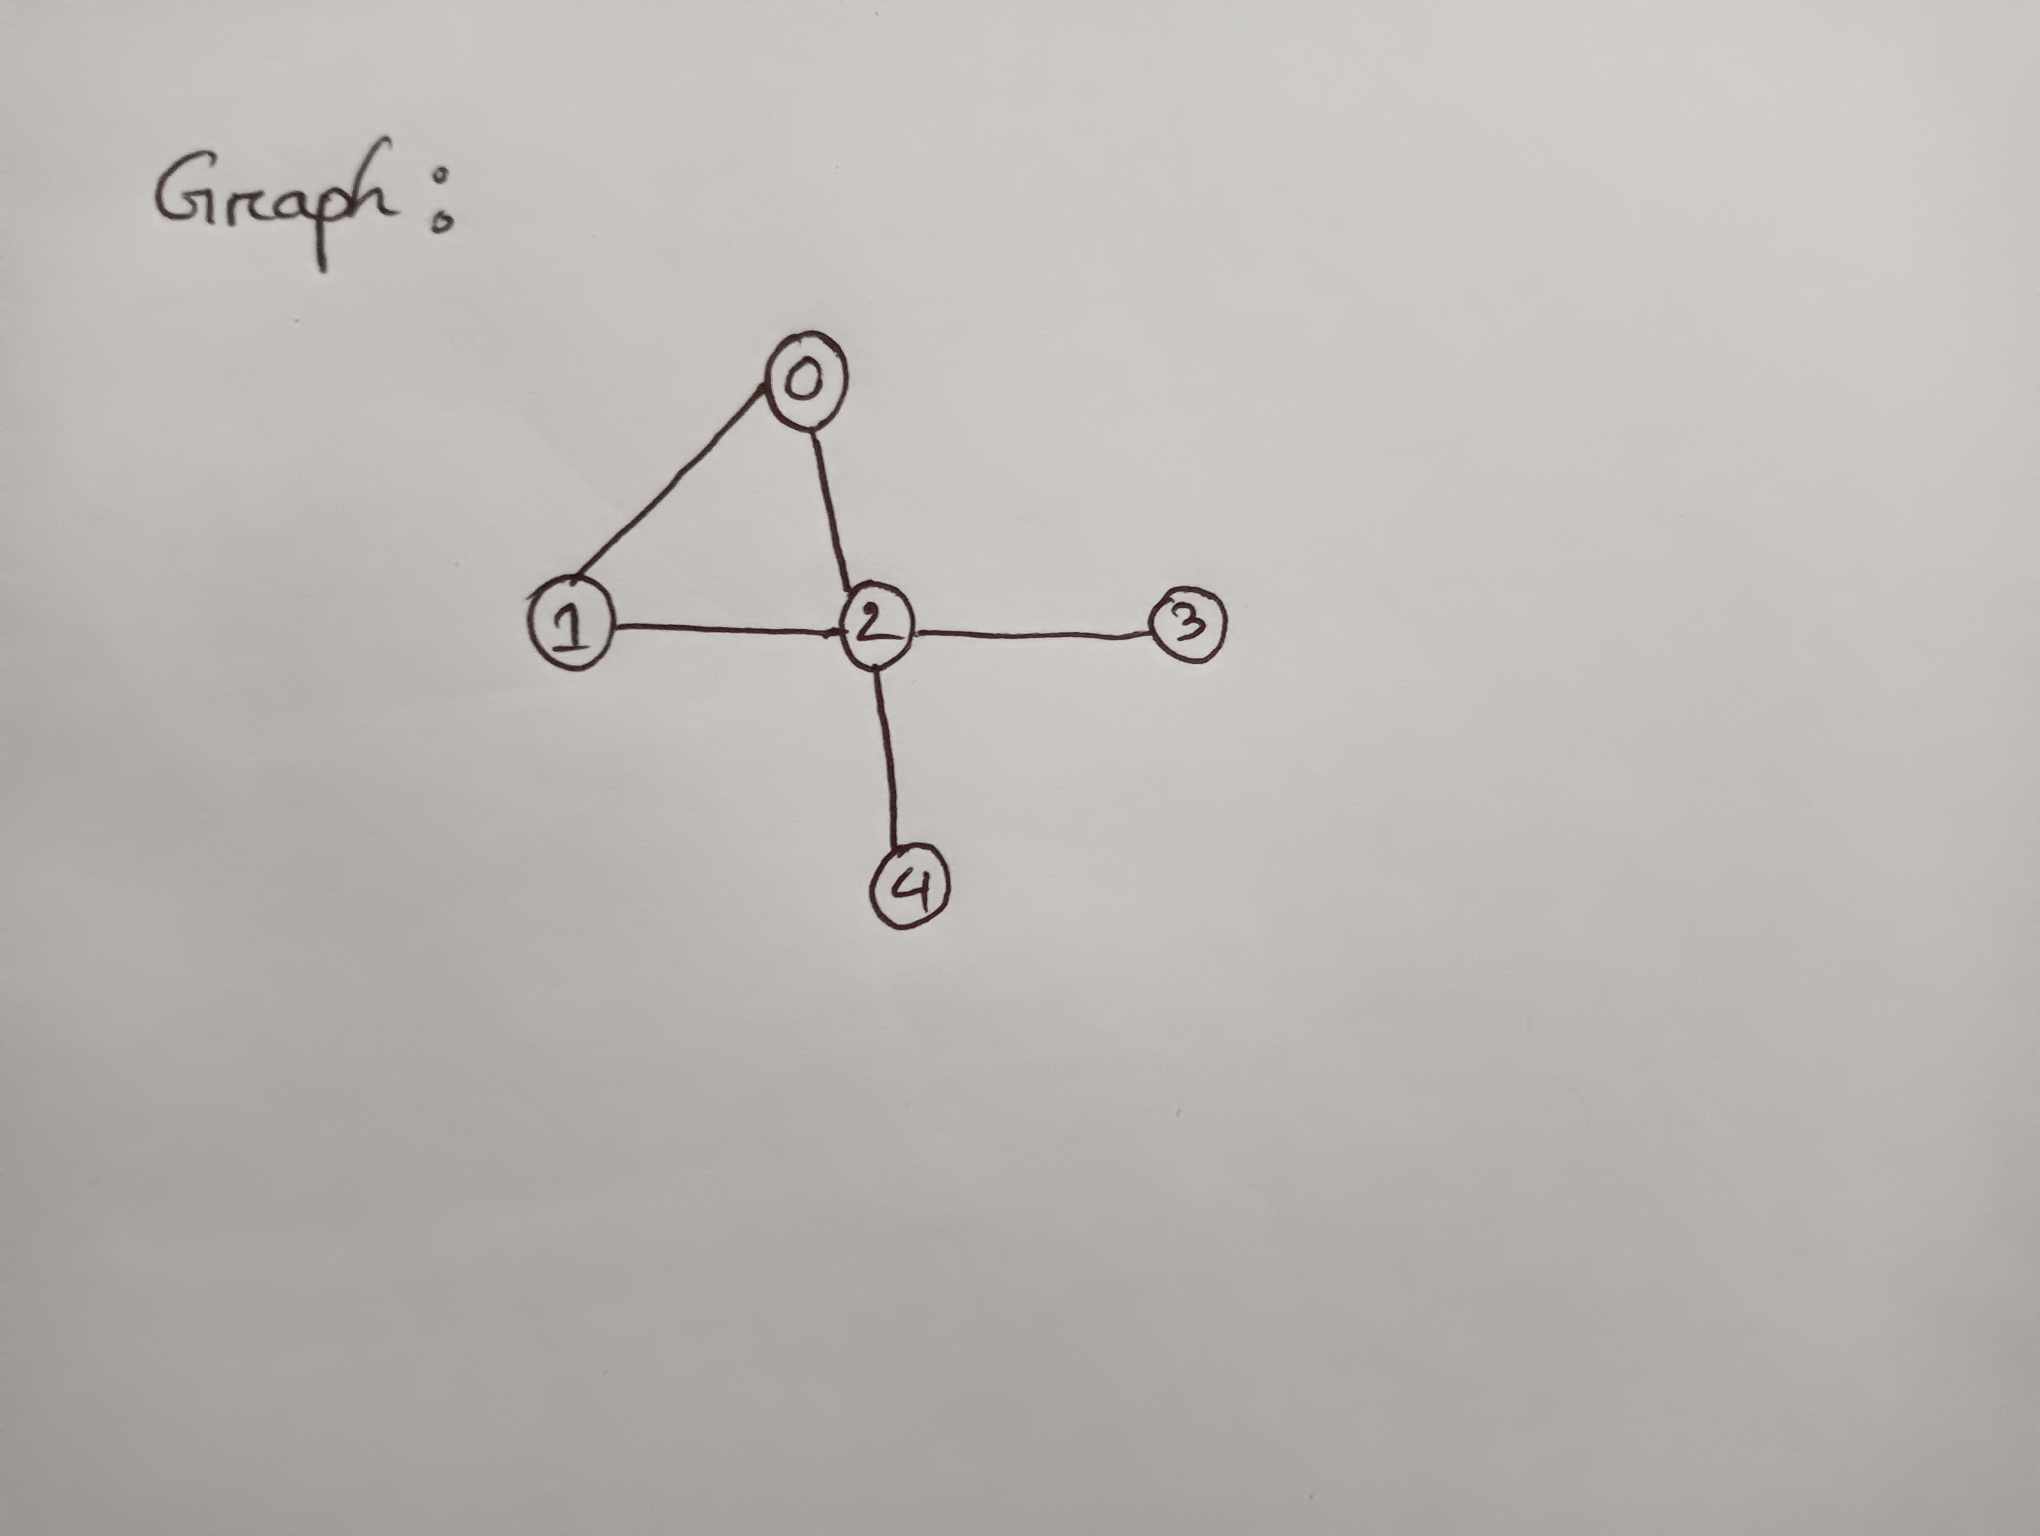 Graph:
0
1 2 3
4